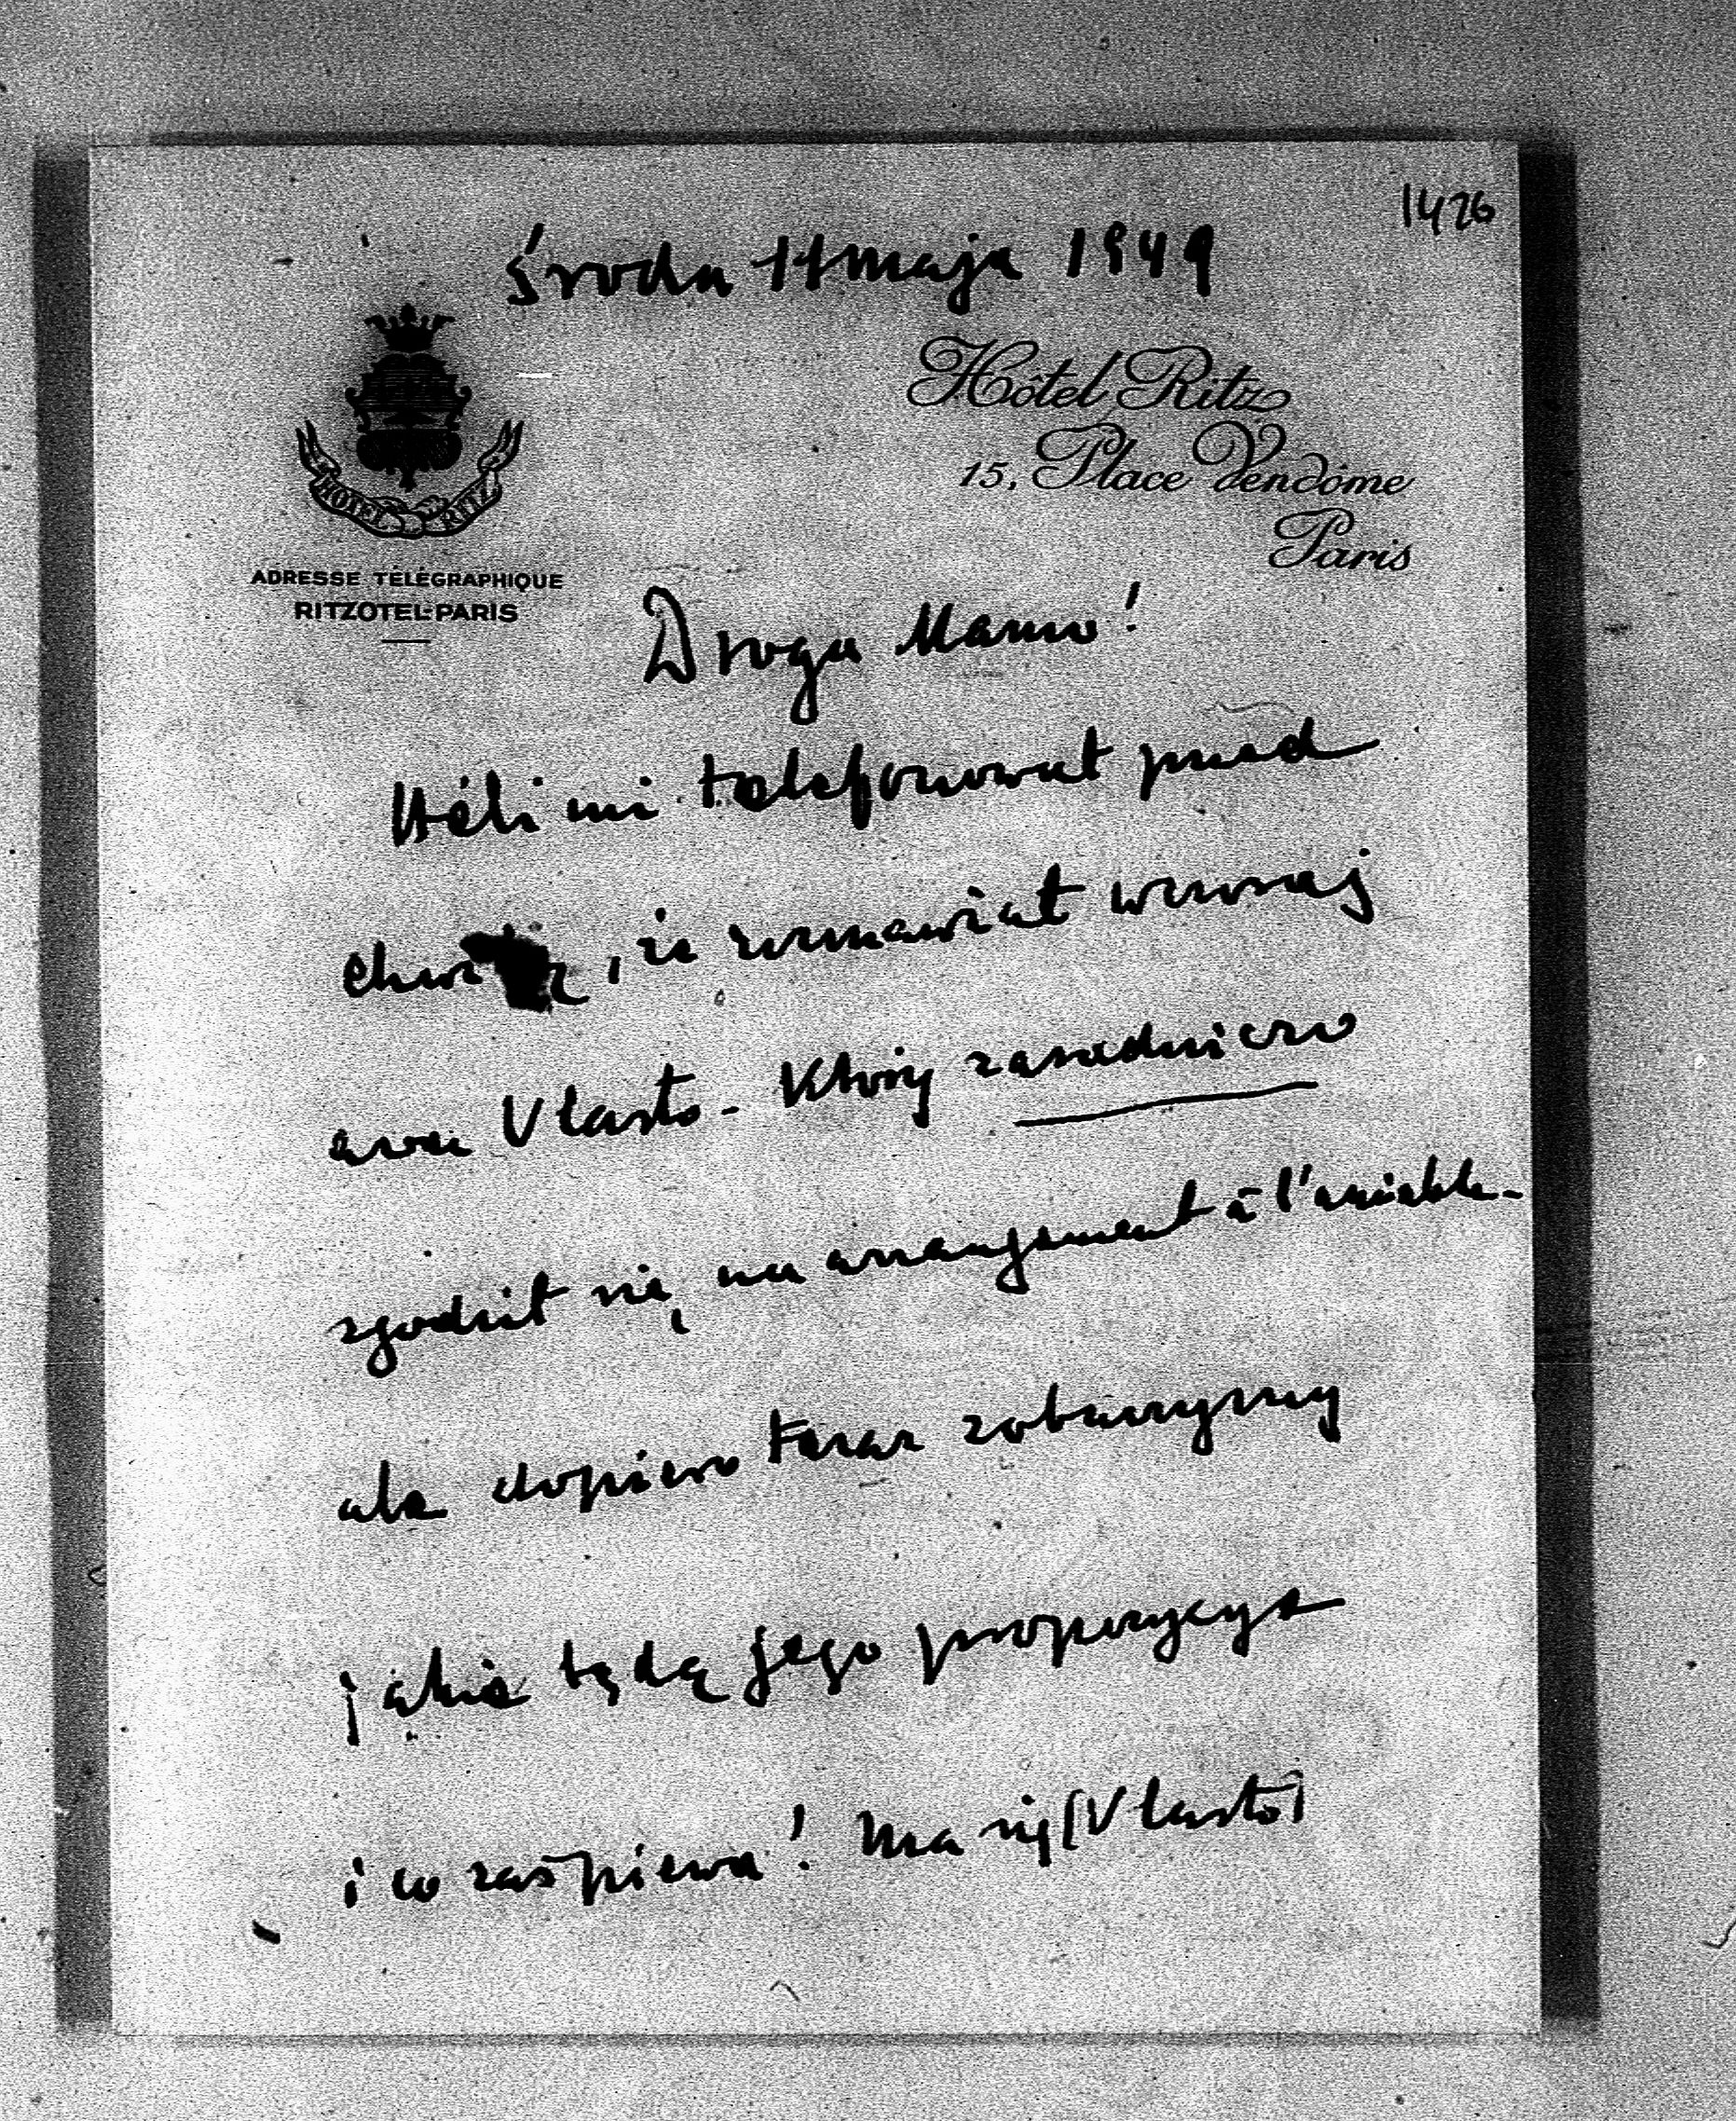 1426
Środa 11 maja 1949
Hôtel Ritz
15, Place Vendôme
Paris
HOTEL RITZ
ADRESSE TÉLÉGRAPHIQUE
RITZOTEL-PARIS
Droga Mamo!
Héli mi telefonował przed
chwilą, że rozmawiał wczoraj
avec Vlasto - Który zasadniczo
zgodził się na arrangement à l'amiable -
ale dopiero teraz zobaczymy
jakie będą jego propozycye
i co zaśpiewa! Ma się (Vlasto)